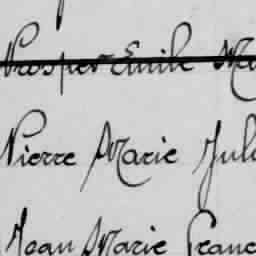 Prosper Emile Ma
Pierre Marie Jul
Jean Marie Franc